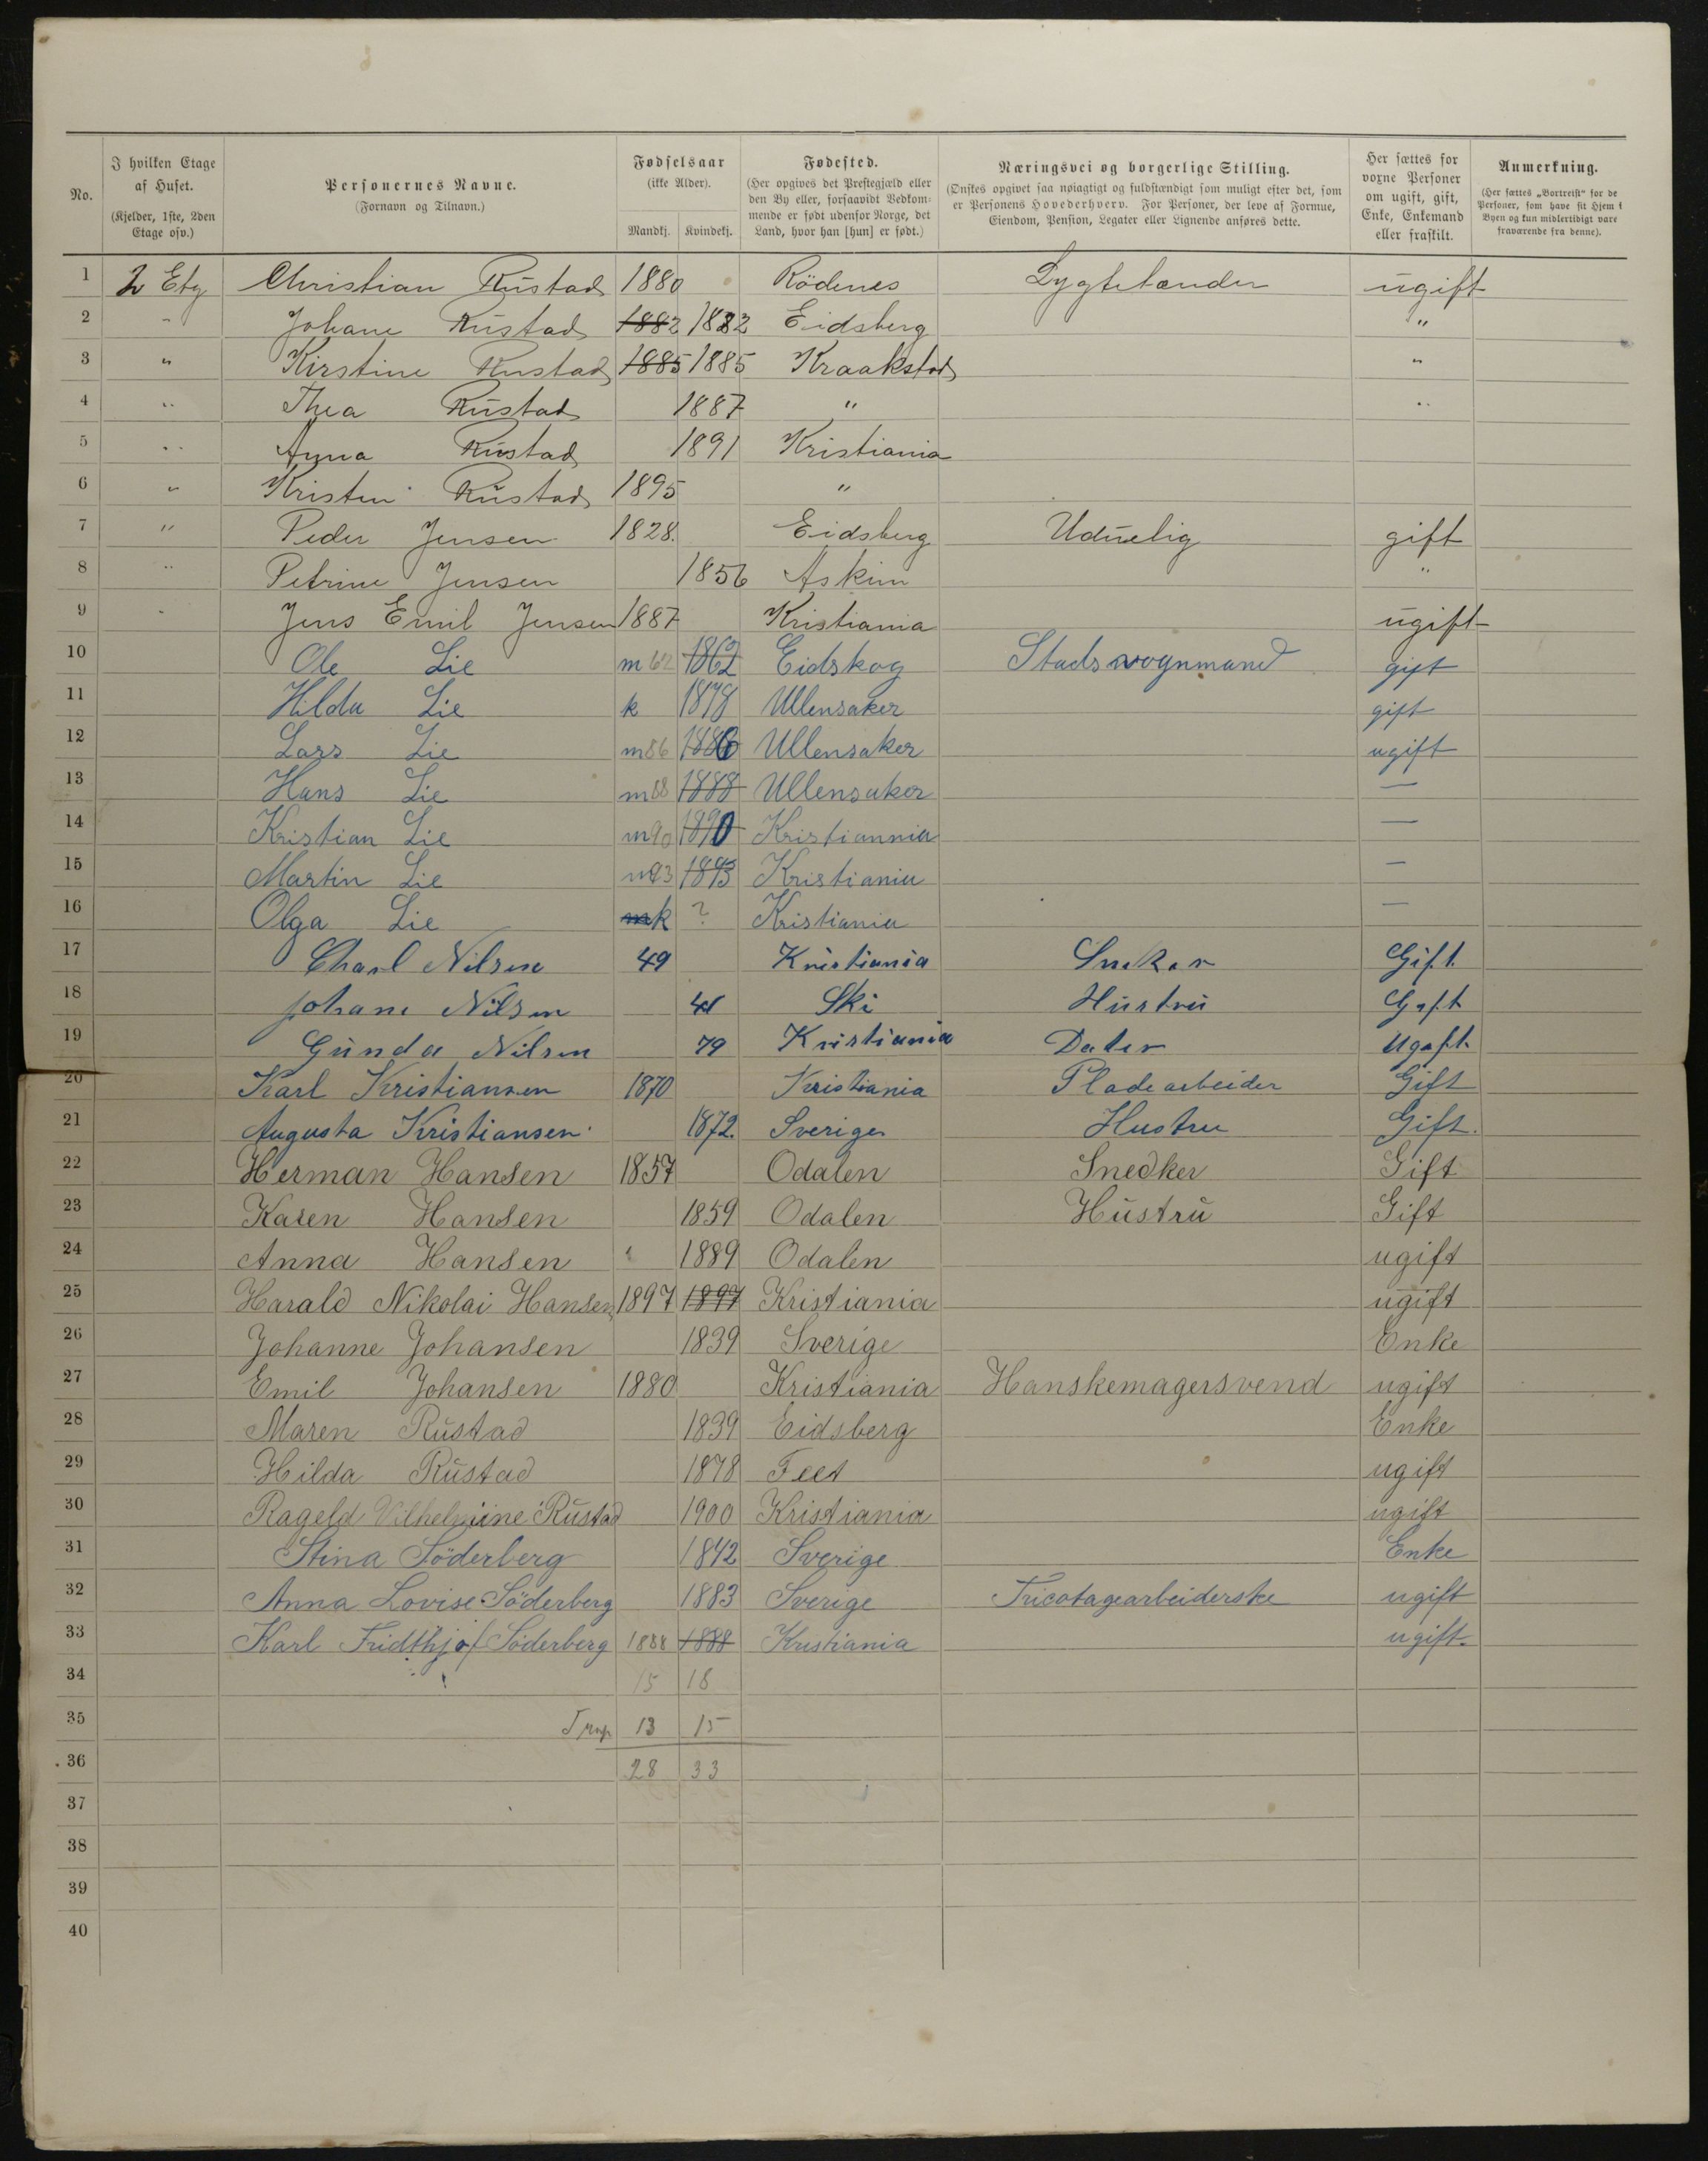 No.
I hvilken Etage af Huset. (Kjelder, 1ste, 2den Etage osv.)
Personernes Navne. (Fornavn og Tilnavn.)
Fødselsaar (ikke Alder). Mandkj. Kvindekj.
Fødested. (Her opgives det Prestegjæld eller den By eller, forsaavidt Vedkommende er født udenfor Norge, det Land, hvor han [hun] er født.)
Næringsvei og borgerlige Stilling. (Ønskes opgivet saa nøiagtigt og fuldstændigt som muligt efter det, som er Personens Hovederhverv. For Personer, der leve af Formue, Eiendom, Pension, Legater eller Lignende anføres dette.
Her sættes for voxne Personer om ugift, gift, Enke, Enkemand eller fraskilt.
Anmerkning. (Her sættes „Bortreist“ for de Personer, som have sit Hjem i Byen og kun midlertidigt vare fraværende fra denne).
1 2 Etg Christian Rustad 1880 Rödenes Lygtetænder ugift
2 " Johane Rustad 1882 1882 Eidsberg "
3 " Kirstine Rustad 1885 1885 Kraakstad "
4 " Thea Rustad 1887 " "
5 " Anna Rustad 1891 Kristiania
6 " Kristen Rustad 1895 "
7 " Peder Jensen 1828. Eidsberg Uduelig gift
8 " Petrine Jensen 1856 Askim "
9 " Jens Emil Jensen 1887 Kristiania ugift
10 Ole Lie m 62 1862 Eidskog Stadsvognmand gift
11 Hilda Lie k 1878 Ullensaker gift
12 Lars Lie m 86 1886 Ullensaker ugift
13 Hans Lie m 88 1888 Ullensaker —
14 Kristian Lie m 90 1890 Kristiannia —
15 Martin Lie m 93 1893 Kristiania —
16 Olga Lie m k ? Kristiania —
17 Charl Nilsen 49 Kristiania Sneker Gift
18 Johane Nilsen 41 Ski Hustru Gift
19 Gunda Nilsen 79 Kristiania Dater Ugift
20 Karl Kristiansen 1870 Kristiania Pladearbeider Gift
21 Augusta Kristiansen 1872. Sverige Hustru Gift.
22 Herman Hansen 1857 Odalen Snedker Gift
23 Karen Hansen 1859 Odalen Hustru Gift
24 Anna Hansen 1889 Odalen ugift
25 Harald Nikolai Hansen 1897 1897 Kristiania ugift
26 Johanne Johansen 1839 Sverige Enke
27 Emil Johansen 1880 Kristiania Hanskemagersvend ugift
28 Maren Rustad 1839 Eidsberg Enke
29 Hilda Rustad 1878 Feet ugift
30 Rageld Vilhelmine Rustad 1900 Kristiania ugift
31 Stina Söderberg 1842 Sverige Enke
32 Anna Lovise Söderberg 1883 Sverige Tricotagearbeiderske ugift
33 Karl Fridthjof Söderberg 1888 1888 Kristiania ugift.
34 15 18
35 13 15
36 28 33
37
38
39
40